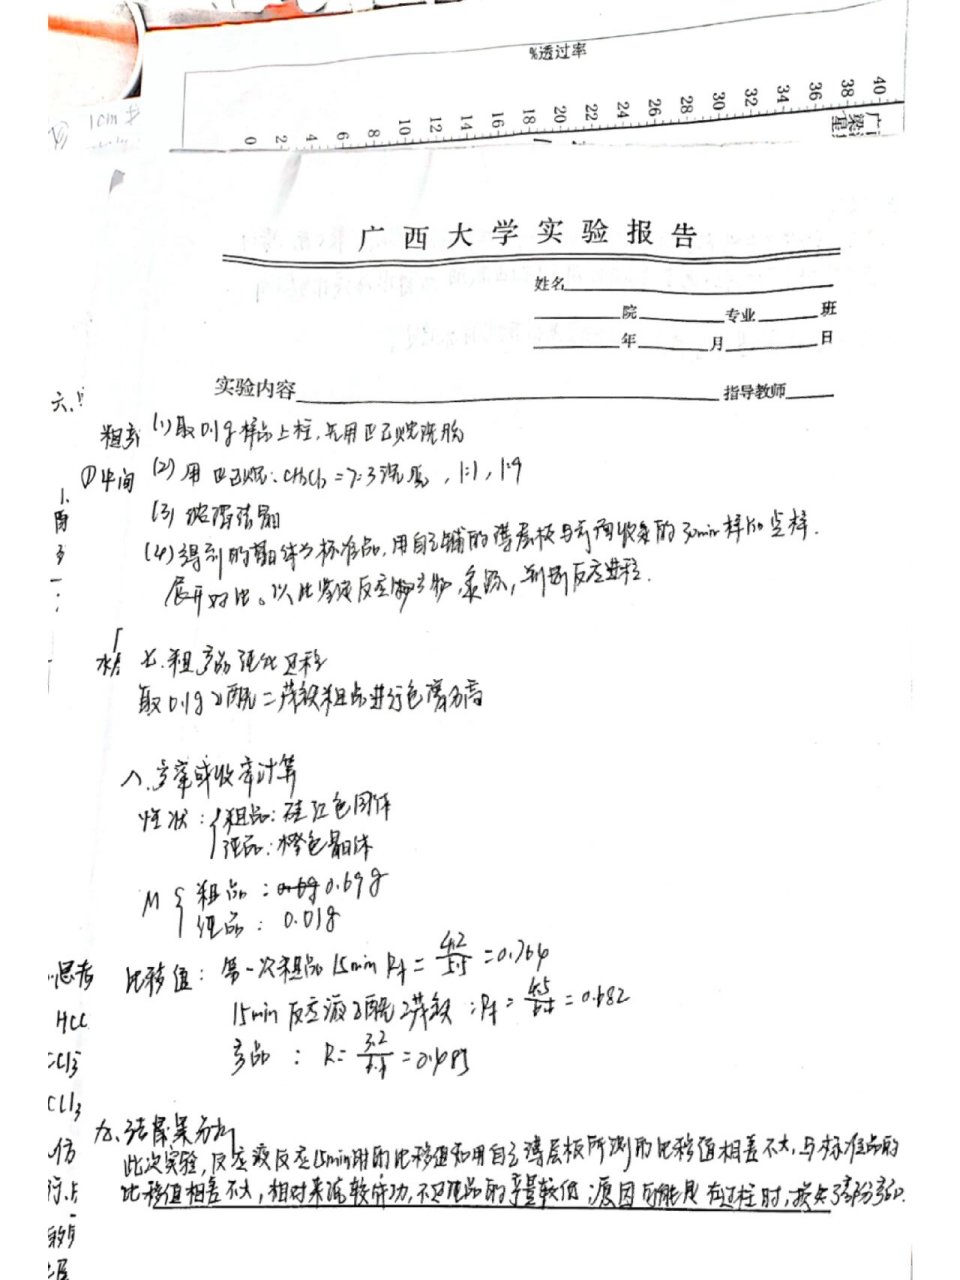 %透过率
0 2 4 6 8 10 12 14 16 18 20 22 24 26 28 30 32 34 36 38 40
1cm
广西大学实验报告
姓名
院 专业 班
年 月 日
实验内容 指导教师
六.
(1) 取0.1g样品上柱,先用正己烷洗脱
①中间 (2) 用正己烷:CH2Cl2=7:3洗脱,1:1,1:9
(3) 浓缩结晶
(4) 得到的晶体为标准品,用自己铺的薄层板与前面收集的30min样
展开对比。以此鉴定反应物产物,判断反应进程.
七.粗产品纯化过程
取0.1g乙酰二茂铁粗品进行色谱分离
八.产率或收率计算
性状:粗品:硅红色固体
纯品:橙色晶体
M 粗品:0.69g
纯品:0.01g
思考 比移值:第一次粗品15min Rf= =0.764
HCC 15min反应液乙酰二茂铁:Rf= =0.682
产品:R=
九.结果分析
此次实验,反应液反应15min时的比移值和用自己薄层板所测的比移值相差不大,与标准品的
比移值相差不大,相对来说较成功,不过纯品的产量较低;原因可能是在过柱时,损失了部分产品.